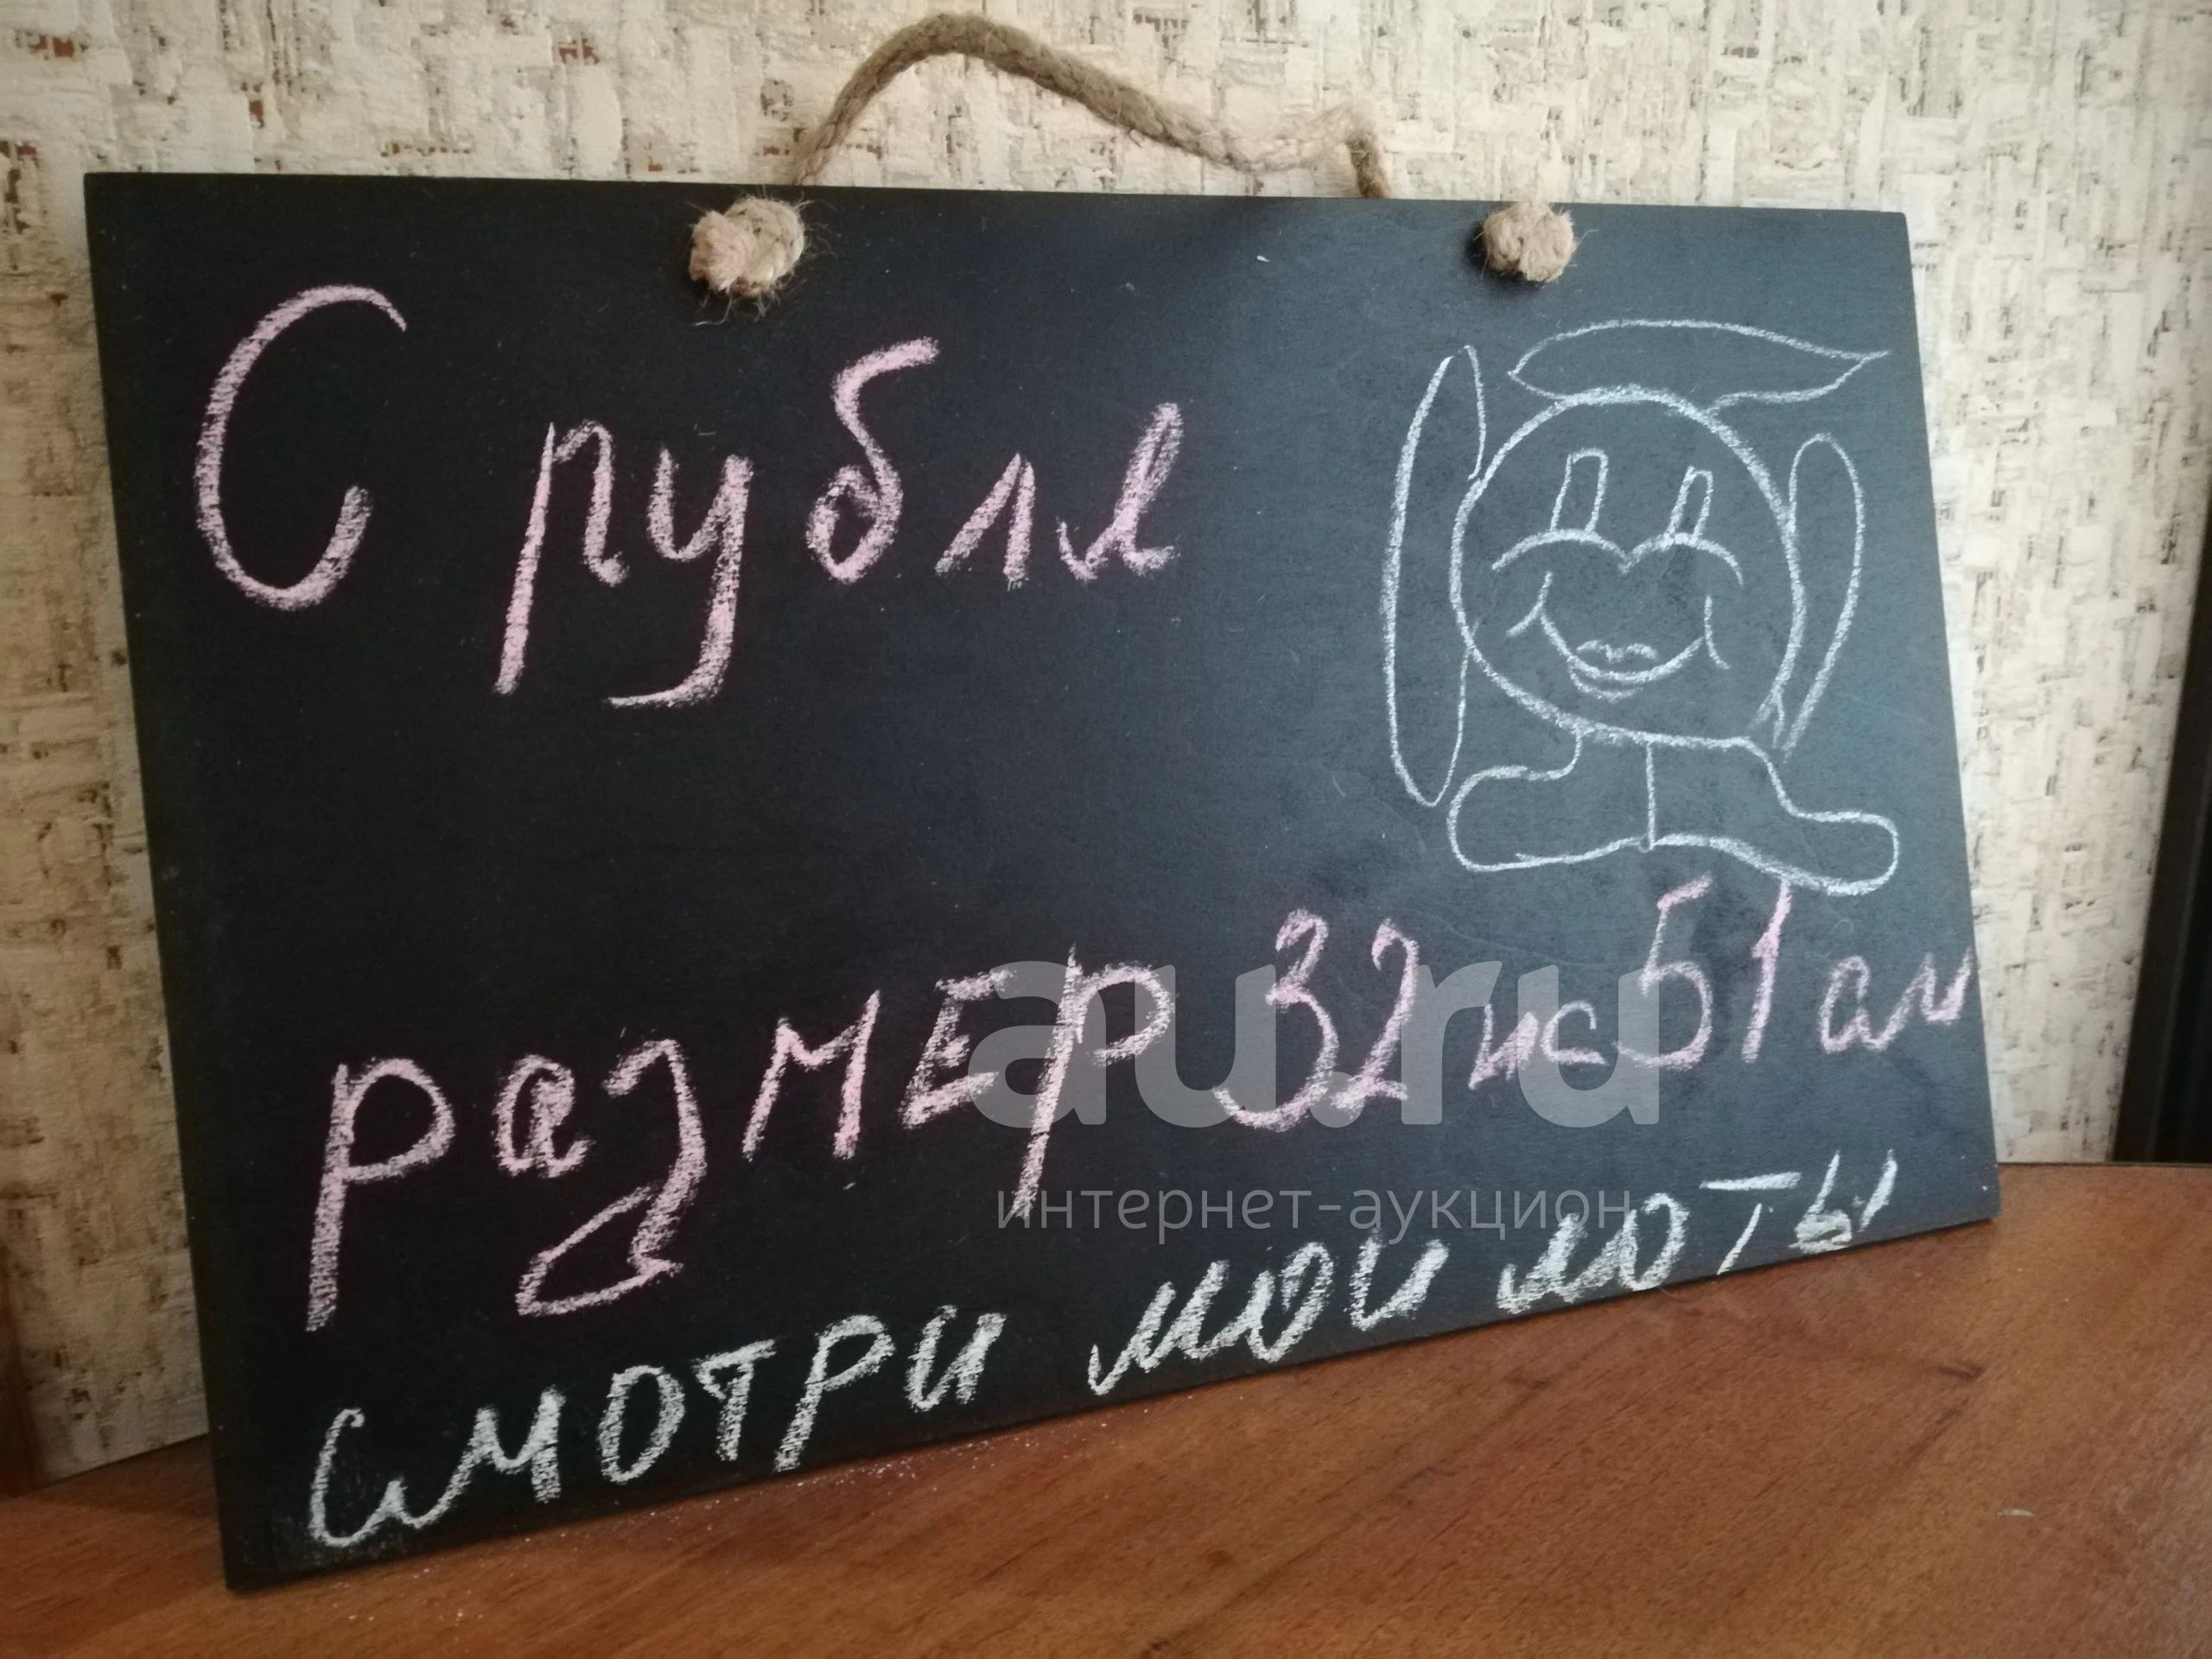 С рубля
размер 32 на 51 см
au.ru
интернет-аукцион
смотри мои лоты